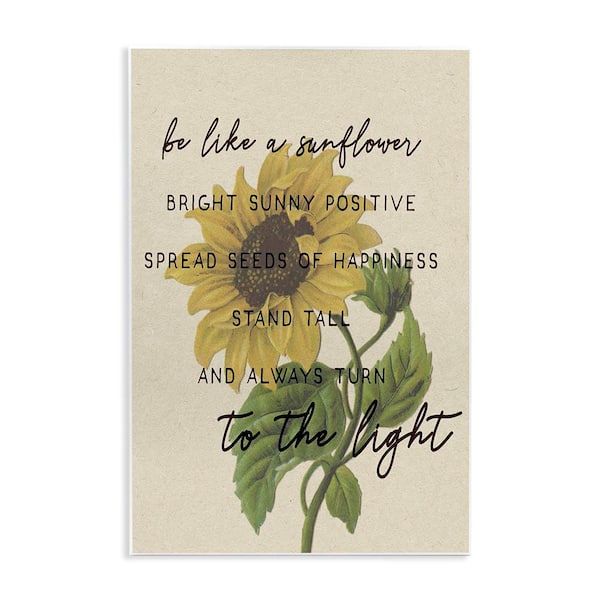 be like a sunflower
BRIGHT SUNNY POSITIVE
SPREAD SEEDS OF HAPPINESS
STAND TALL
AND ALWAYS TURN
to the light